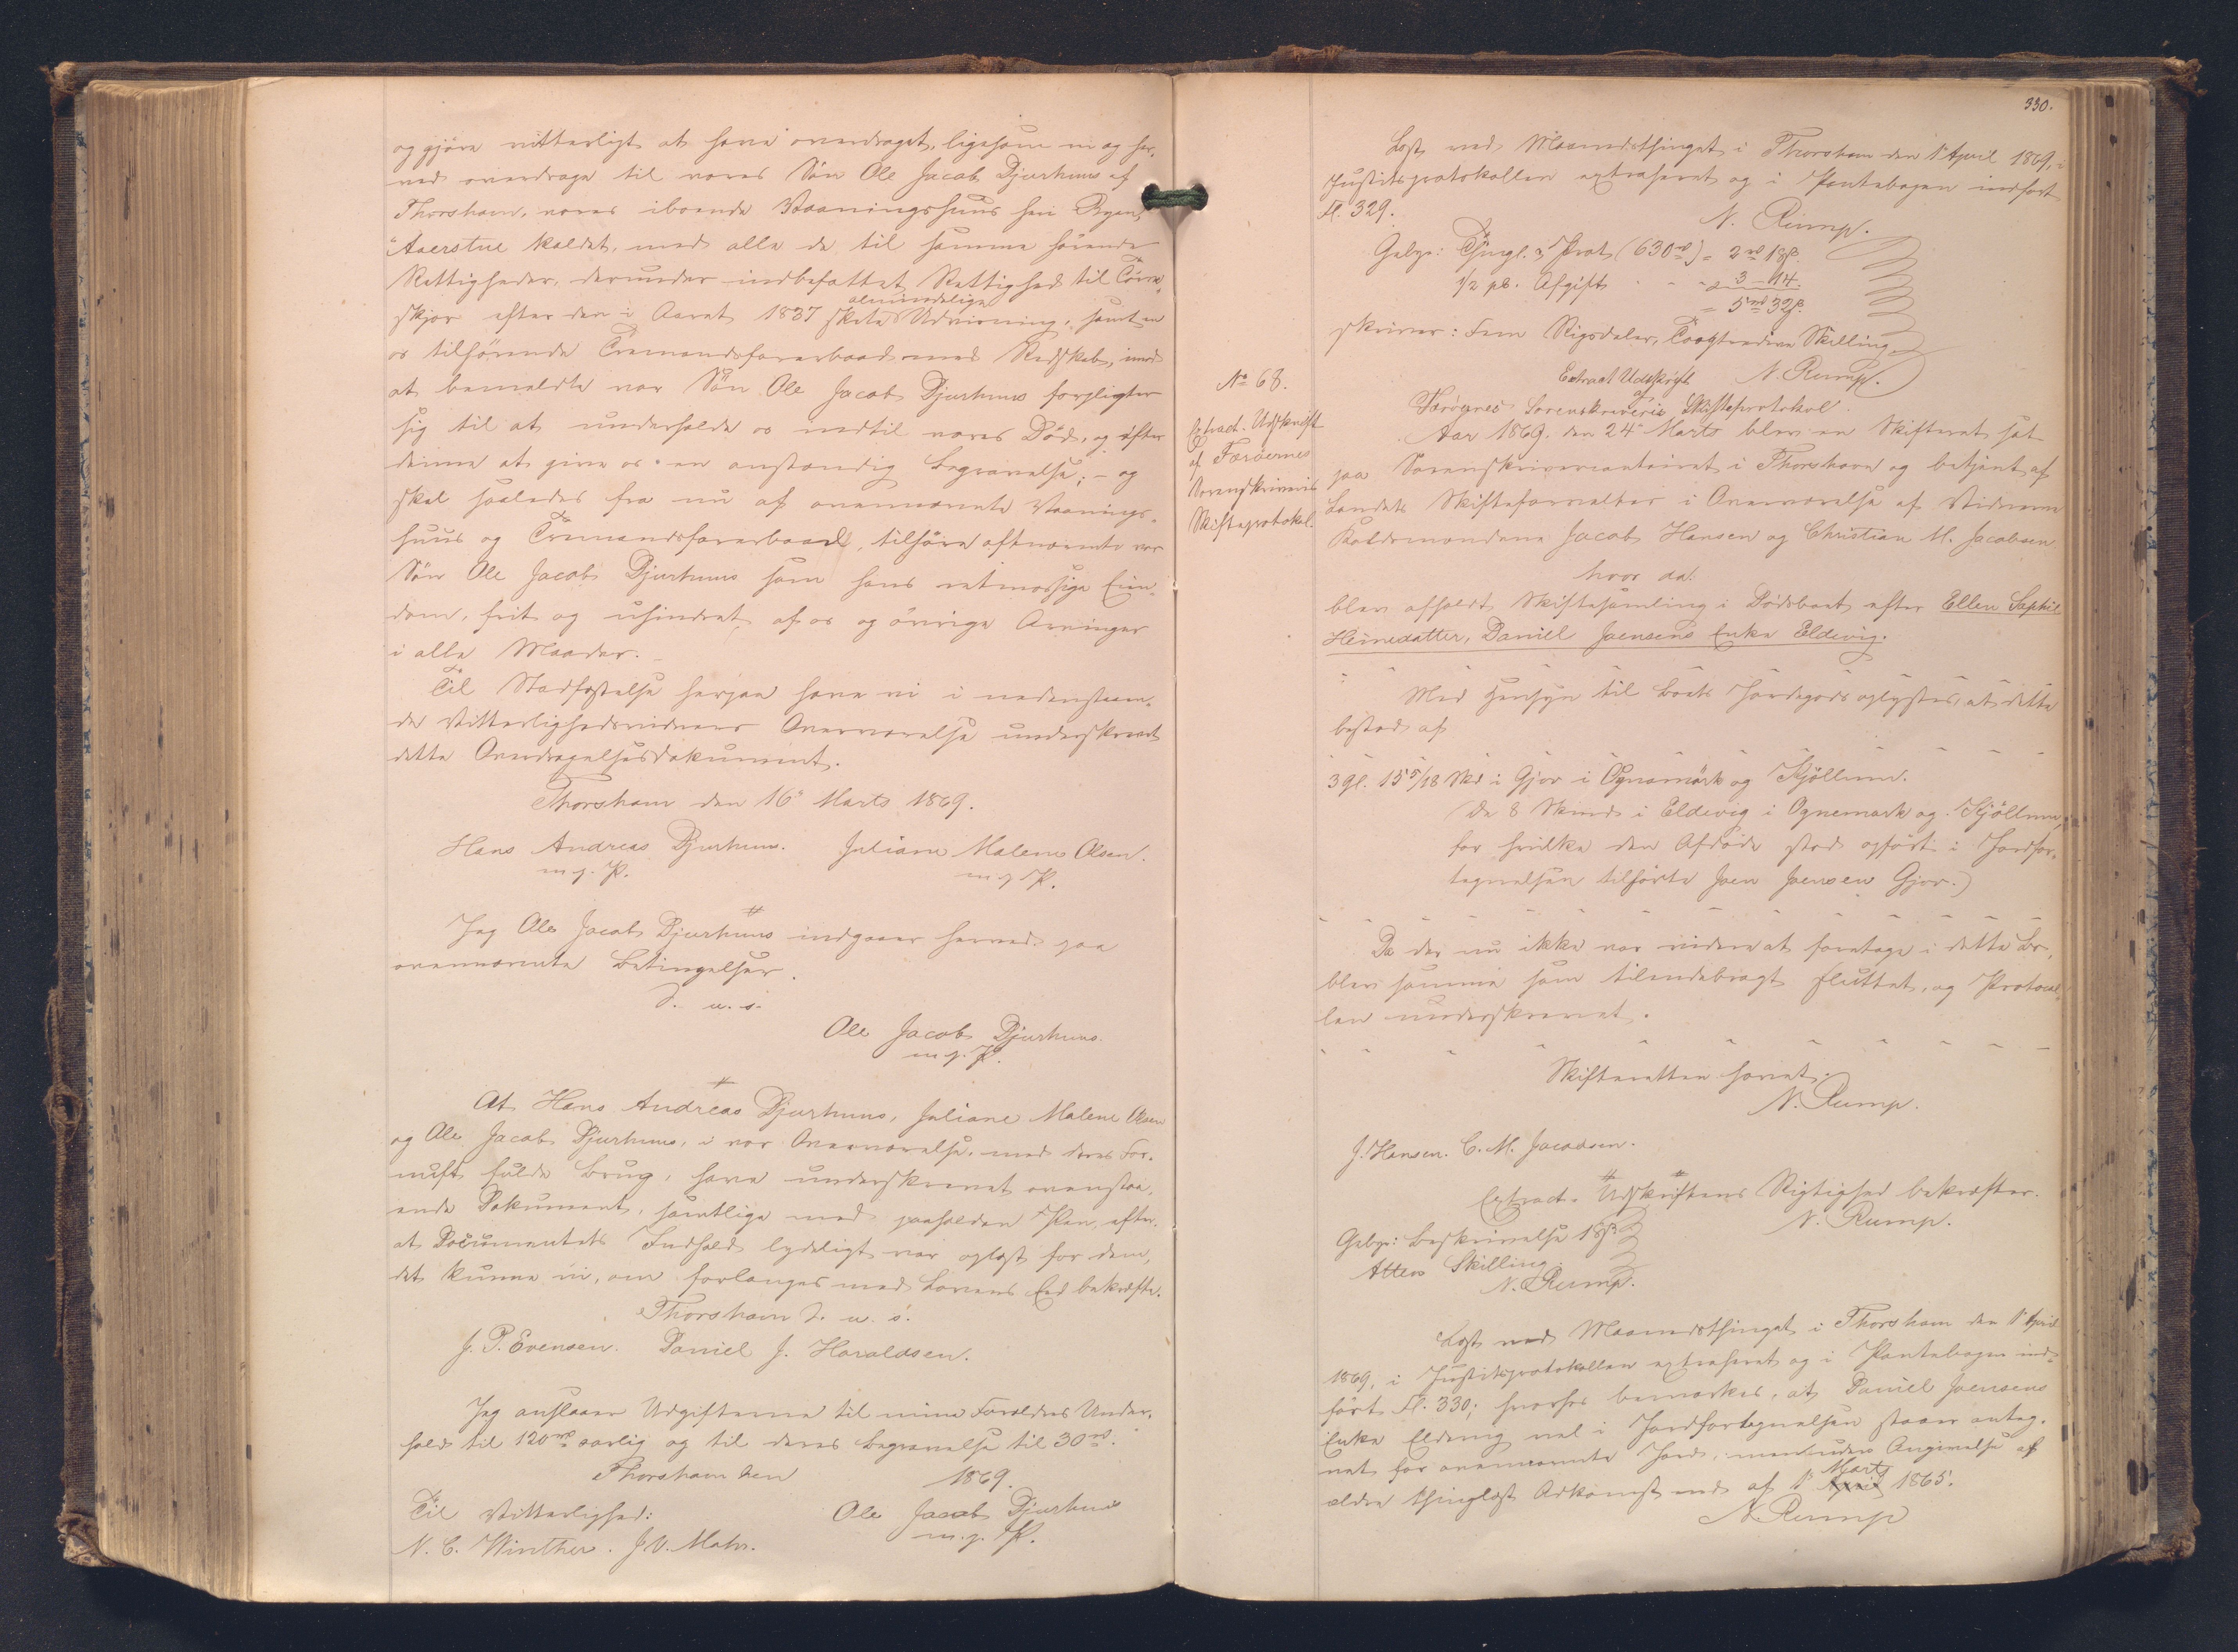 og gjøre vitterligt at have overdraget, ligesom vi og her-
ved overdrage til vores Søn Ole Jacob Djurhuus af
Thorshavn, vores iboende Vaaningshuus her i Byen,
"Aaerstue kaldet, med alle de til samme hørende
Rettigheder, derunder indbefattet Rettighed til Törve-
skjær efter den i Aaret 1837 skete almindelige Udvisning, samt en
os tilhörende Tremandsfarerbaad med Redskab, imod
at bemeldte vor Sön Ole Jacob Djurhuus forpligter
sig til at underholde os indtil vores Död, og efter
denne at give os en anstændig Begravelse; - og
skal saaledes fra nu af ovennævnte Vaanings-
huus og Tremandsfarerbaad, tilhöre oftnævnte vor
Sön Ole Jacob Djurhuus som hans retmæssige Eien-
dom, frit og uhindret af os og övrige Arvinger
i alle Maader.
Til Stadfæstelse herpaa have vi i nedenstaaen-
de Vitterlighedsvidners Overværelse underskrevet
dette Overdragelsesdokument.
Thorshavn den 16de Marts 1869.
Hans Andreas Djurhuus. Juliane Malene Olsen.
m. p. P. m. p. P.
Jeg Ole Jacob Djurhuus indgaaer herved paa
ovennævnte Betingelser.
D. u. s.
Ole Jacob Djurhuus.
m. p. P.
At Hans Andreas Djurhuus, Juliane Malene Olsen
og Ole Jacob Djurhuus, i vor Overværelse, med deres For-
nufts fulde Brug, have underskrevet ovenstaa-
ende Dokument, samtlige med paaholden Pen, efter
at Documentets Indhold lydeligt var oplæst for dem,
det kunne vi, om forlanges med Lovens Eed bekræfte.
Thorshavn D. u. s.
J. P. Evensen. Daniel J. Haraldsen.
Jeg anslaaer Udgifterne til mine Forældres Under-
hold til 120rd aarlig og til deres Begravelse til 30rd.
Thorshavn den 1869.
Til Vitterlighed: Ole Jacob Djurhuus
N. C. Winther. J. V. Mohr. m. p. P.
330.
Læst ved Maanedsthinget i Thorshavn den 1' April 1869, i
Justitsprotokollen extraheret og i Pantebogen indført
Fl. 329.
N. Rump.
Gebyr: Thingl. & Prot (630rd) = 2rd 18ß.
1/2 pC. Afgift - - - 3 - 14.
= 5rd 32ß.
skriver: Fem Rigsdaler, Toogtredive Skilling.
N. Rump.
No 68.
Extract-Udskrift
af Færöernes
Sorenskriveris
Skifteprotokol.
Extract Udskrift
af
Færöernes Sorenskriveris Skifteprotokol.
Aar 1869. den 24de Marts blev en Skifteret sat
paa Sorenskrivercontoiret i Thorshavn og betjent af
Landets Skifteforvalter i Overværelse af Vidnerne
Politimændene Jacob Hansen og Christian M. Jacobsen.
hvor da:
blev afholdt Skiftesamling i Dödsboet efter Ellen Sophie
Heinesdatter, Daniel Joensens Enke Eldevig.
Med Hensyn til Boets Jordegods oplystes, at dette
bestod af
3 gl. 15 5/18 Skd i Gjov i Ognamörk og Kjöllum.
(De 8 Skind i Eldevig i Ognemark og Kjöllum,
for hvilke den Afdöde stod opfört i Jordfor-
tegnelsen tilhörte Joen Joensen Gjov.)
Da der nu ikke var videre at foretage i dette Bo,
blev samme som tilendebragt sluttet, og Protocol-
len underskrevet.
Skifteretten hævet.
N. Rump.
J. Hansen. C. M. Jacobsen.
Extract-Udskriftens Rigtighed bekræfter.
N. Rump.
Gebyr: Beskrivelse 18ß
Atten Skilling.
N. Rump.
Læst ved Maanedsthinget i Thorshavn den 1' April
1869, i Justitsprotokollen extraheret og i Pantebogen ind-
fört Fl. 330; hvorhos bemærkes, at Daniel Joensens
Enke Eldevig vel i Jordfortegnelsen staaer anteg-
net for ovennævnte Jord, men uden Angivelse af
ældre thinglæst Adkomst end af 1' Marts 1865.
N. Rump